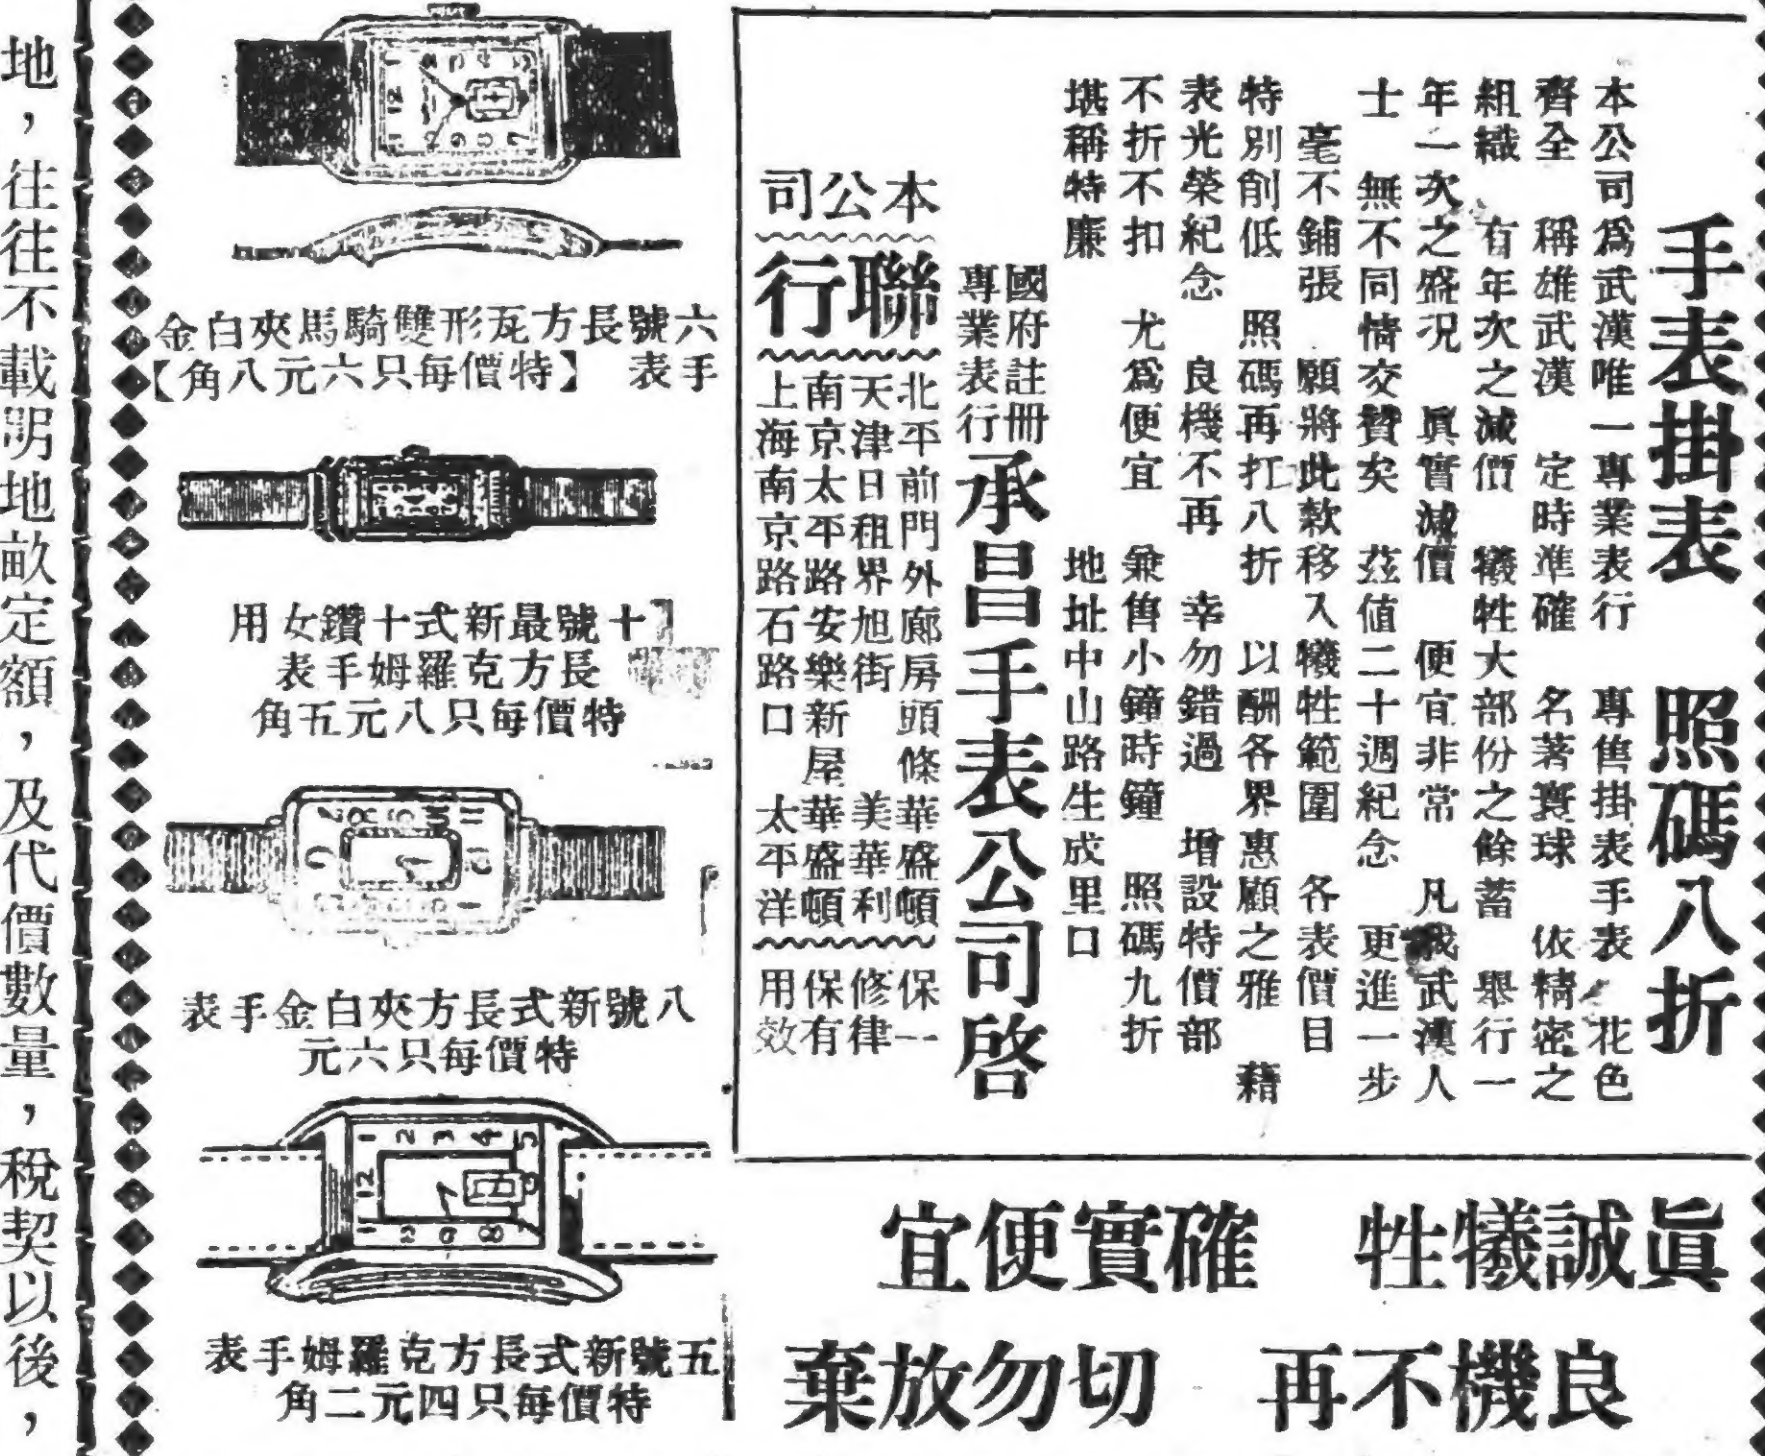 手表掛表　照碼八折
本公司爲武漢唯一專業表行　專售掛表手表　花色
齊全　稱雄武漢　定時準確　名著寰球　依精密之
組織　有年次之減價　犧牲大部份之餘蓄　舉行一
年一次之盛况　眞實減價　便宜非常　凡我武漢人
士　無不同情交贊矣　茲值二十週紀念　更進一步
毫不鋪張　願將此欵移入犧牲範圍　各表價目
特別削低　照碼再扛八折　以酬各界惠顧之雅　藉
表光榮紀念　良機不再　幸勿錯過　增設特價部
不折不扣　尤爲便宜　兼售小鐘時鐘　照碼九折
堪稱特廉　地址中山路生成里口
國府註冊
專業表行
承昌手表公司啓
本公司
聯行
北平前門外廊房頭條華盛頓
天津日租界旭街　美華利
南京太平路安樂新屋華盛頓
上海南京路石路口　太平洋
保一
修律
保有
用效
眞誠犧牲　確實便宜
良機不再　切勿放棄
六號長方瓦形雙騎馬夾白金
手表　【特價每只六元八角】
十號最新式十鑽女用
長方克羅姆手表
特價每只八元五角
八號新式長方夾白金手表
特價每只六元
五號新式長方克羅姆手表
特價每只四元二角
地，往往不載明地畝定額，及代價數量，稅契以後，